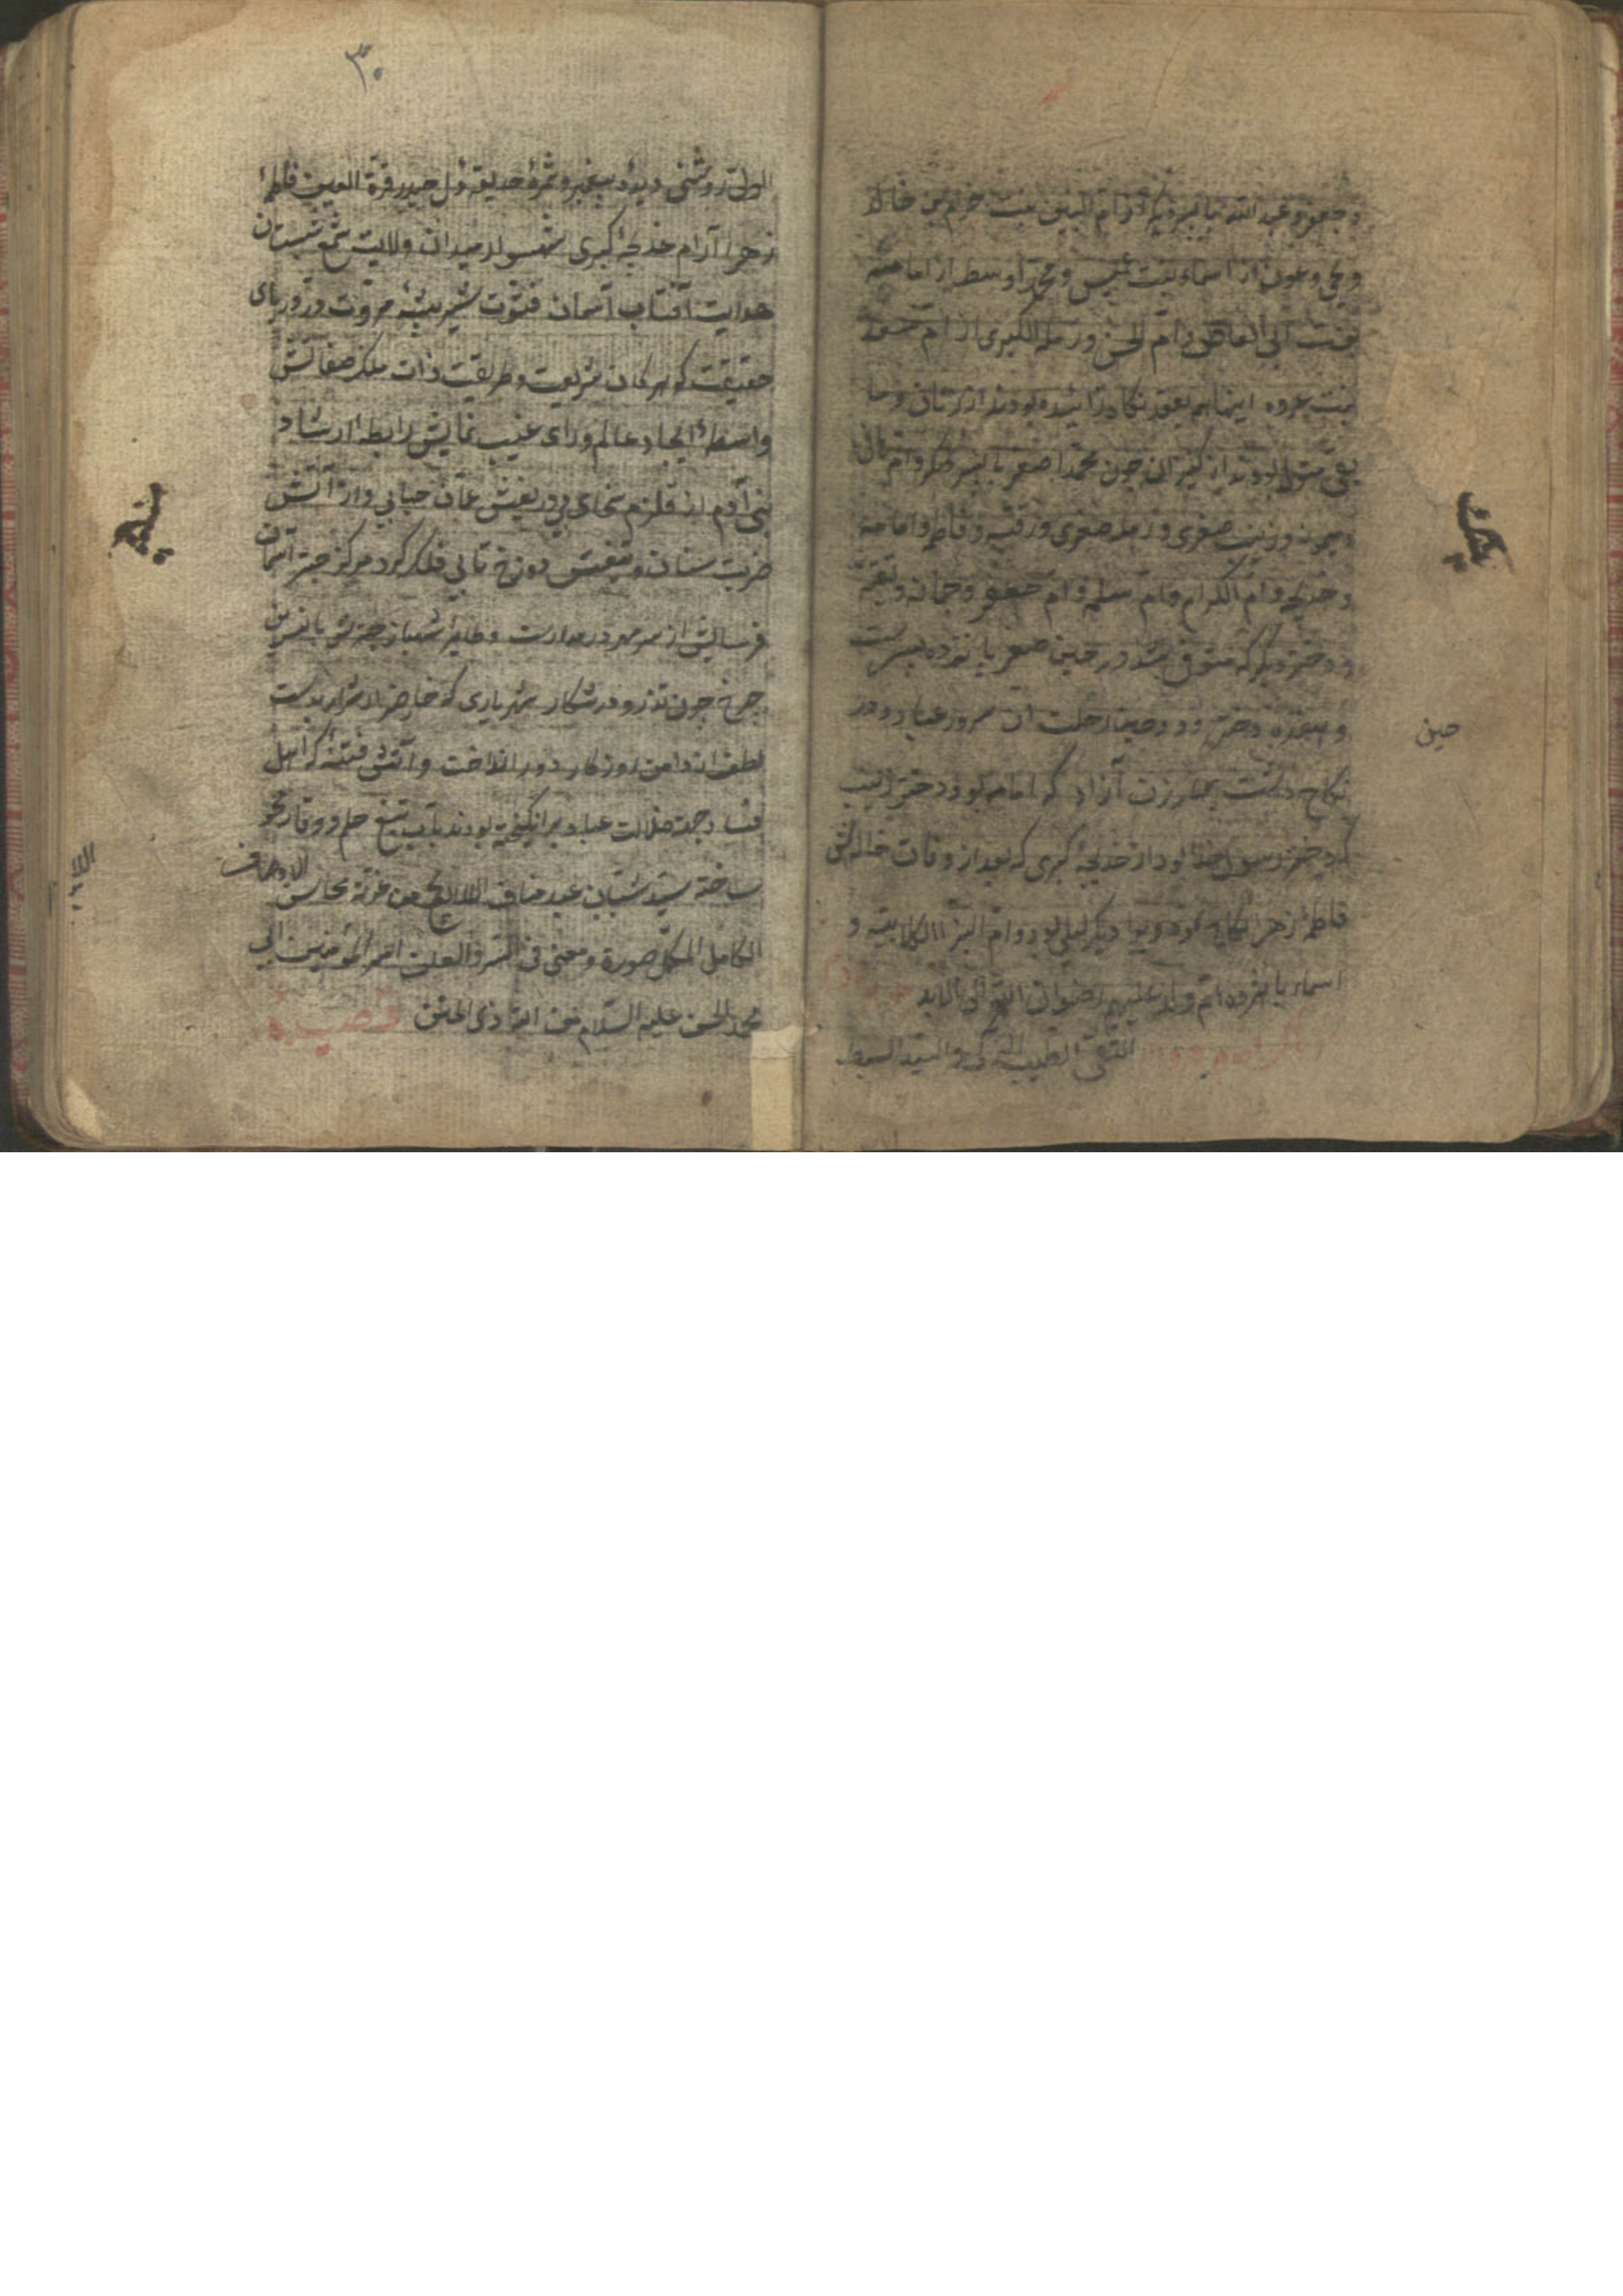 و جعفر و عبدالله با پسر دیگر از ام البنین بنت حرام بن خالد
و یحیی و عون از اسماء بنت عمیس و محمد اوسط از امامه
بنت ابی العاص و ام الحسن و رملة الکبری از ام سعید
بنت عروه اینها هم بعقد نکاح زاییده بودند از زنان و ما
بقی متولد بودند از کنیزان چون محمد اصغر با پسر دیگر و ام هانی
و میمونه و زینب صغری و رمله صغری و رقیه و فاطمه و امامه
و خدیجه و ام الکرام و ام سلمه و ام جعفر و جمانه و نفیسه
و دختر دیگر که متوفی شد در حین صغر پانزده پسرست
و هیجده دختر و در حین رحلت آن سرور عباد در
حین
نکاح داشت چهار زن آزاد که امامه بود دختر زینب
که دختر رسول خدا بود از خدیجه کبری که بعد از وفات خاله‌اش
فاطمه زهرا نکاح نموده بود و دیگر لیلی بود و ام البنین الکلابیه و
اسماء با نوزده ام ولد علیهم رضوان الله الی الابد
التقی الطیب الزکی و السید السبط
۳۰
الولی روشنی دیده پیغمبر و ثمره حدیقه دل حیدر قرة العین فاطمه
زهرا آرام خدیجه کبری شهسوار میدان ولایت شمع شبستان
هدایت آفتاب آسمان فتوت شیر بیشه مروت در دریای
حقیقت گوهر کان شریعت و طریقت ذات ملک صفاتش
واسطه ایجاد عالم و رای غیب نمایش رابطه ارشاد
بنی آدم از قلزم سخای بی دریغش عمان حبابی و از آتش
ضربت سنان و تیغش دوزخ تابی فلک گرد مرکز چتر آسمان
فرسایش از سر مهر در مدارست و طایر شهباز چتر شر با نسرین
چرخ چون تذرو در شکار شهریاری که خار ضرار اشرار بدست
لطف از دامن روزگار دور انداخت و آتش فتنه که اهل
فساد جهة ضلالت عباد برانگیخته بودند بآب تیغ حلم و وقار محو
ساخته سید شبان عبد مناف اللایح من غرته محاسن
الاوصاف
الکامل المکمل صورة و معنی فی السر و العلن امیر المؤمنین ابی
محمد الحسن علیه السلام من الله ذی المنن قصیده